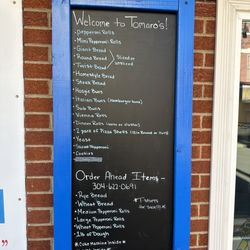 Welcome to Tomaro's!
•Pepperoni Rolls
•Mini Pepperoni Rolls
•Giant Bread
•Round Bread / Sliced or unsliced
•Twist Bread
•Homestyle Bread
•Steak Bread
•Hoagie Buns
•Italian Buns (Hamburger buns)
•Sub Buns
•Vienna Rolls
•Dinner Rolls
•2 pack of Pizza Shells
•Yeast
•Sliced Pepperoni
•Cookies
Order Ahead Items-
304-622-0691
•Rye Bread
•Wheat Bread
•Medium Pepperoni Rolls
•Large Pepperoni Rolls
•Wheat Pepperoni Rolls
•1 lb of Dough
*Coke Machine Inside*